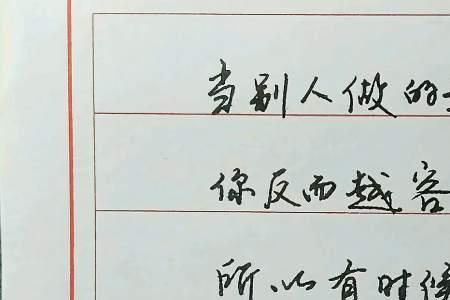 当别人做的
你反而越容
所以有时候